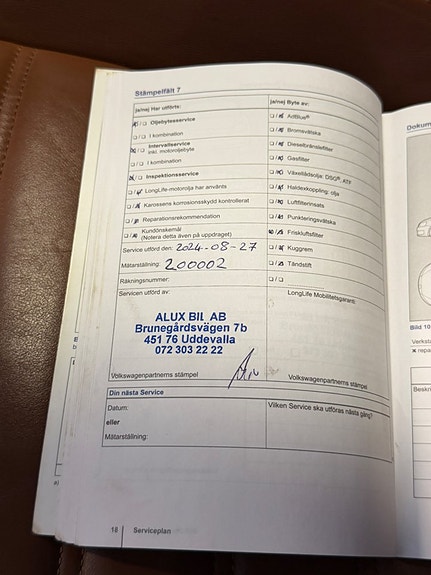 Stämpelfält 7
ja/nej Har utförts:
ja/nej Byte av:
Oljebytesservice
AdBlue®
I kombination
Bromsvätska
Intervallservice
inkl. motoroljebyte
Dieselbränslefilter
I kombination
Gasfilter
Inspektionsservice
Växellådsolja: DSG®, ATF
LongLife-motorolja har använts
Haldexkoppling: olja
Karossens korrosionsskydd kontrollerat
Luftfilterinsats
Reparationsrekommendation
Punkteringsvätska
Kundönskemål
(Notera detta även på uppdraget)
Friskluftsfilter
Service utförd den: 2024-08-27
Kuggrem
Mätarställning: 200002
Tändstift
Räkningsnummer:
Servicen utförd av:
LongLife Mobilitetsgaranti:
ALUX BIL AB
Brunegårdsvägen 7b
451 76 Uddevalla
072 303 22 22
Volkswagenpartnerns stämpel
Volkswagenpartnerns stämpel
Din nästa Service
Datum:
Vilken Service ska utföras nästa gång?
eller
Mätarställning:
18 Serviceplan
Dokum
Bild 10
Verksta
repa
Beskri